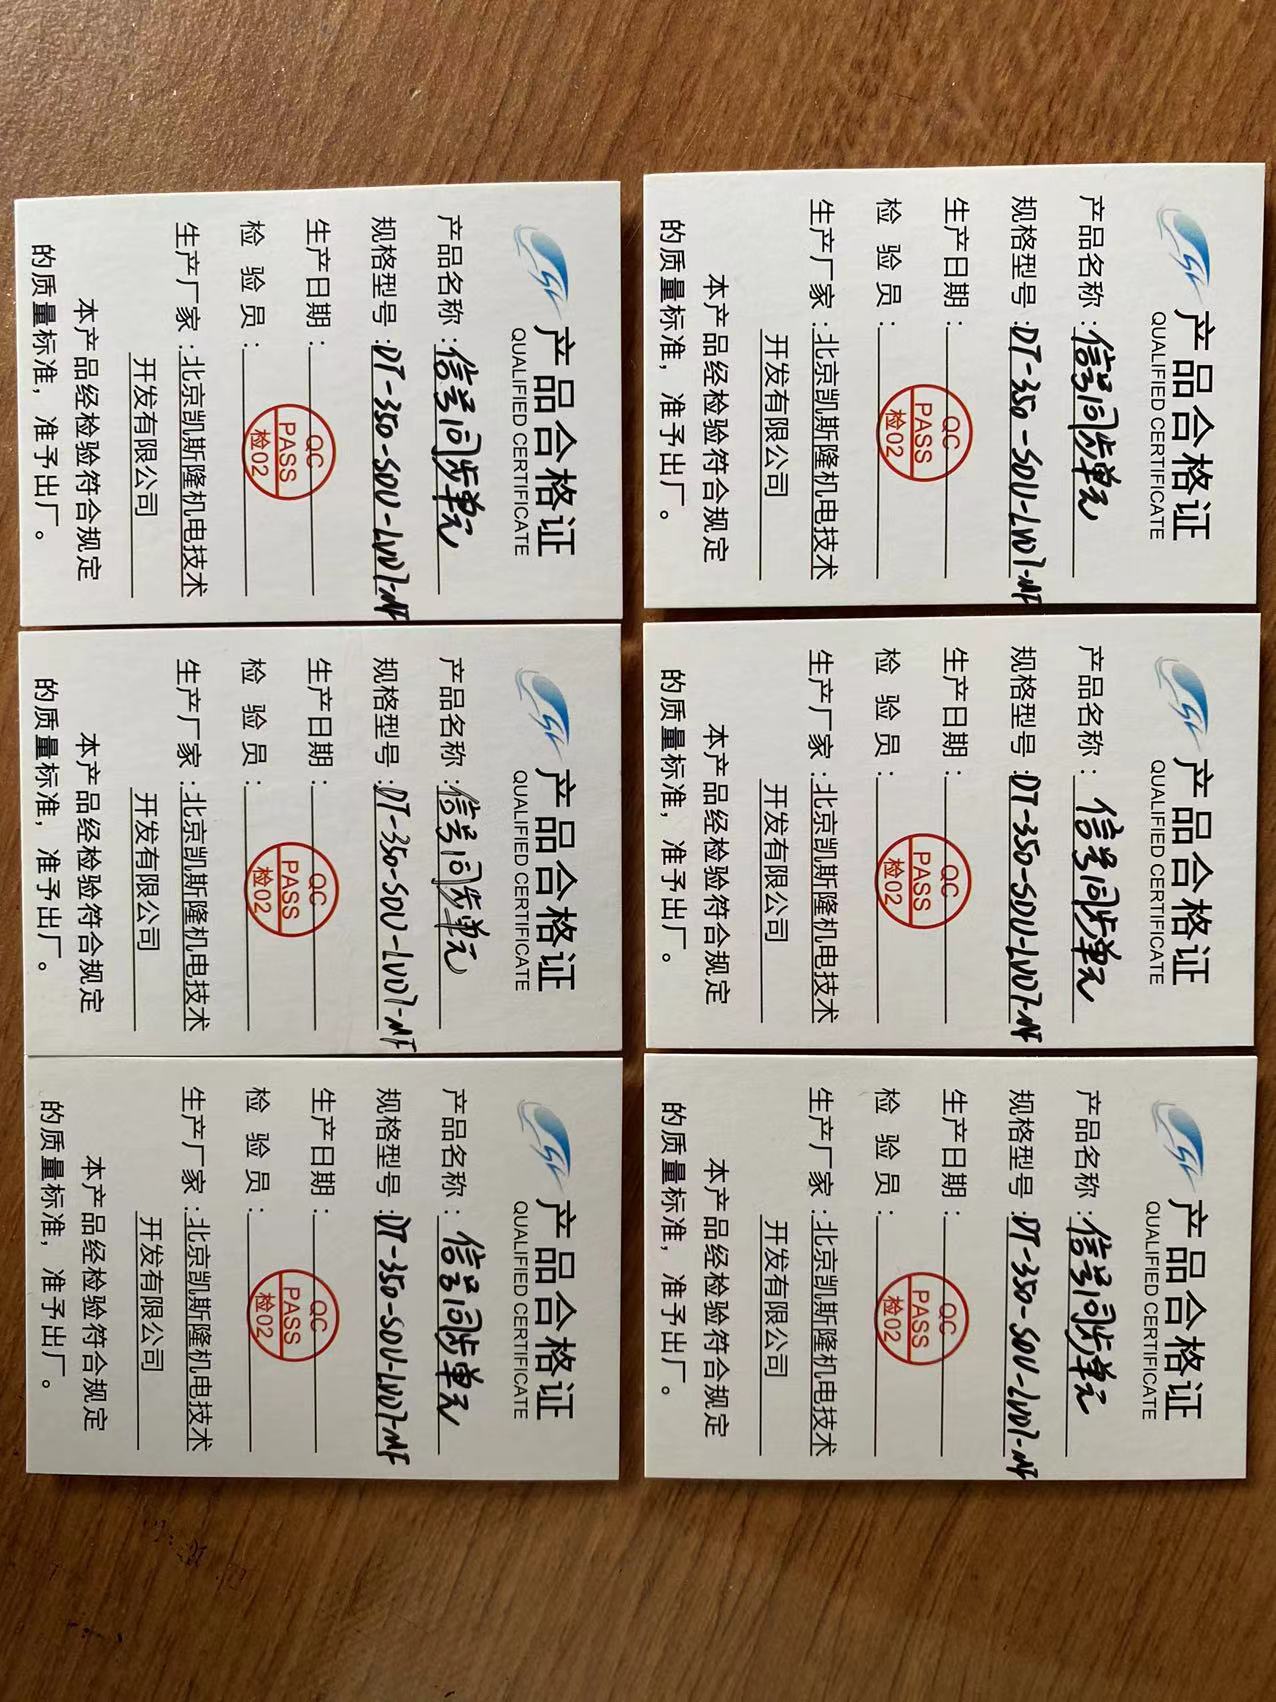 产品合格证
QUALIFIED CERTIFICATE
产品名称：信号同步单元
规格型号：DT-350-SOU-LV07-MF
生产日期：
检 验 员：
QC
PASS
检02
生产厂家：北京凯斯隆机电技术
开发有限公司
本产品经检验符合规定
的质量标准，准予出厂。
产品合格证
QUALIFIED CERTIFICATE
产品名称：信号同步单元
规格型号：DT-350-SOU-LV07-MF
生产日期：
检 验 员：
QC
PASS
检02
生产厂家：北京凯斯隆机电技术
开发有限公司
本产品经检验符合规定
的质量标准，准予出厂。
产品合格证
QUALIFIED CERTIFICATE
产品名称：信号同步单元
规格型号：DT-350-SOU-LV07-MF
生产日期：
检 验 员：
QC
PASS
检02
生产厂家：北京凯斯隆机电技术
开发有限公司
本产品经检验符合规定
的质量标准，准予出厂。
产品合格证
QUALIFIED CERTIFICATE
产品名称：信号同步单元
规格型号：DT-350-SOU-LV07-MF
生产日期：
检 验 员：
QC
PASS
检02
生产厂家：北京凯斯隆机电技术
开发有限公司
本产品经检验符合规定
的质量标准，准予出厂。
产品合格证
QUALIFIED CERTIFICATE
产品名称：信号同步单元
规格型号：DT-350-SOU-LV07-MF
生产日期：
检 验 员：
QC
PASS
检02
生产厂家：北京凯斯隆机电技术
开发有限公司
本产品经检验符合规定
的质量标准，准予出厂。
产品合格证
QUALIFIED CERTIFICATE
产品名称：信号同步单元
规格型号：DT-350-SOU-LV07-MF
生产日期：
检 验 员：
QC
PASS
检02
生产厂家：北京凯斯隆机电技术
开发有限公司
本产品经检验符合规定
的质量标准，准予出厂。